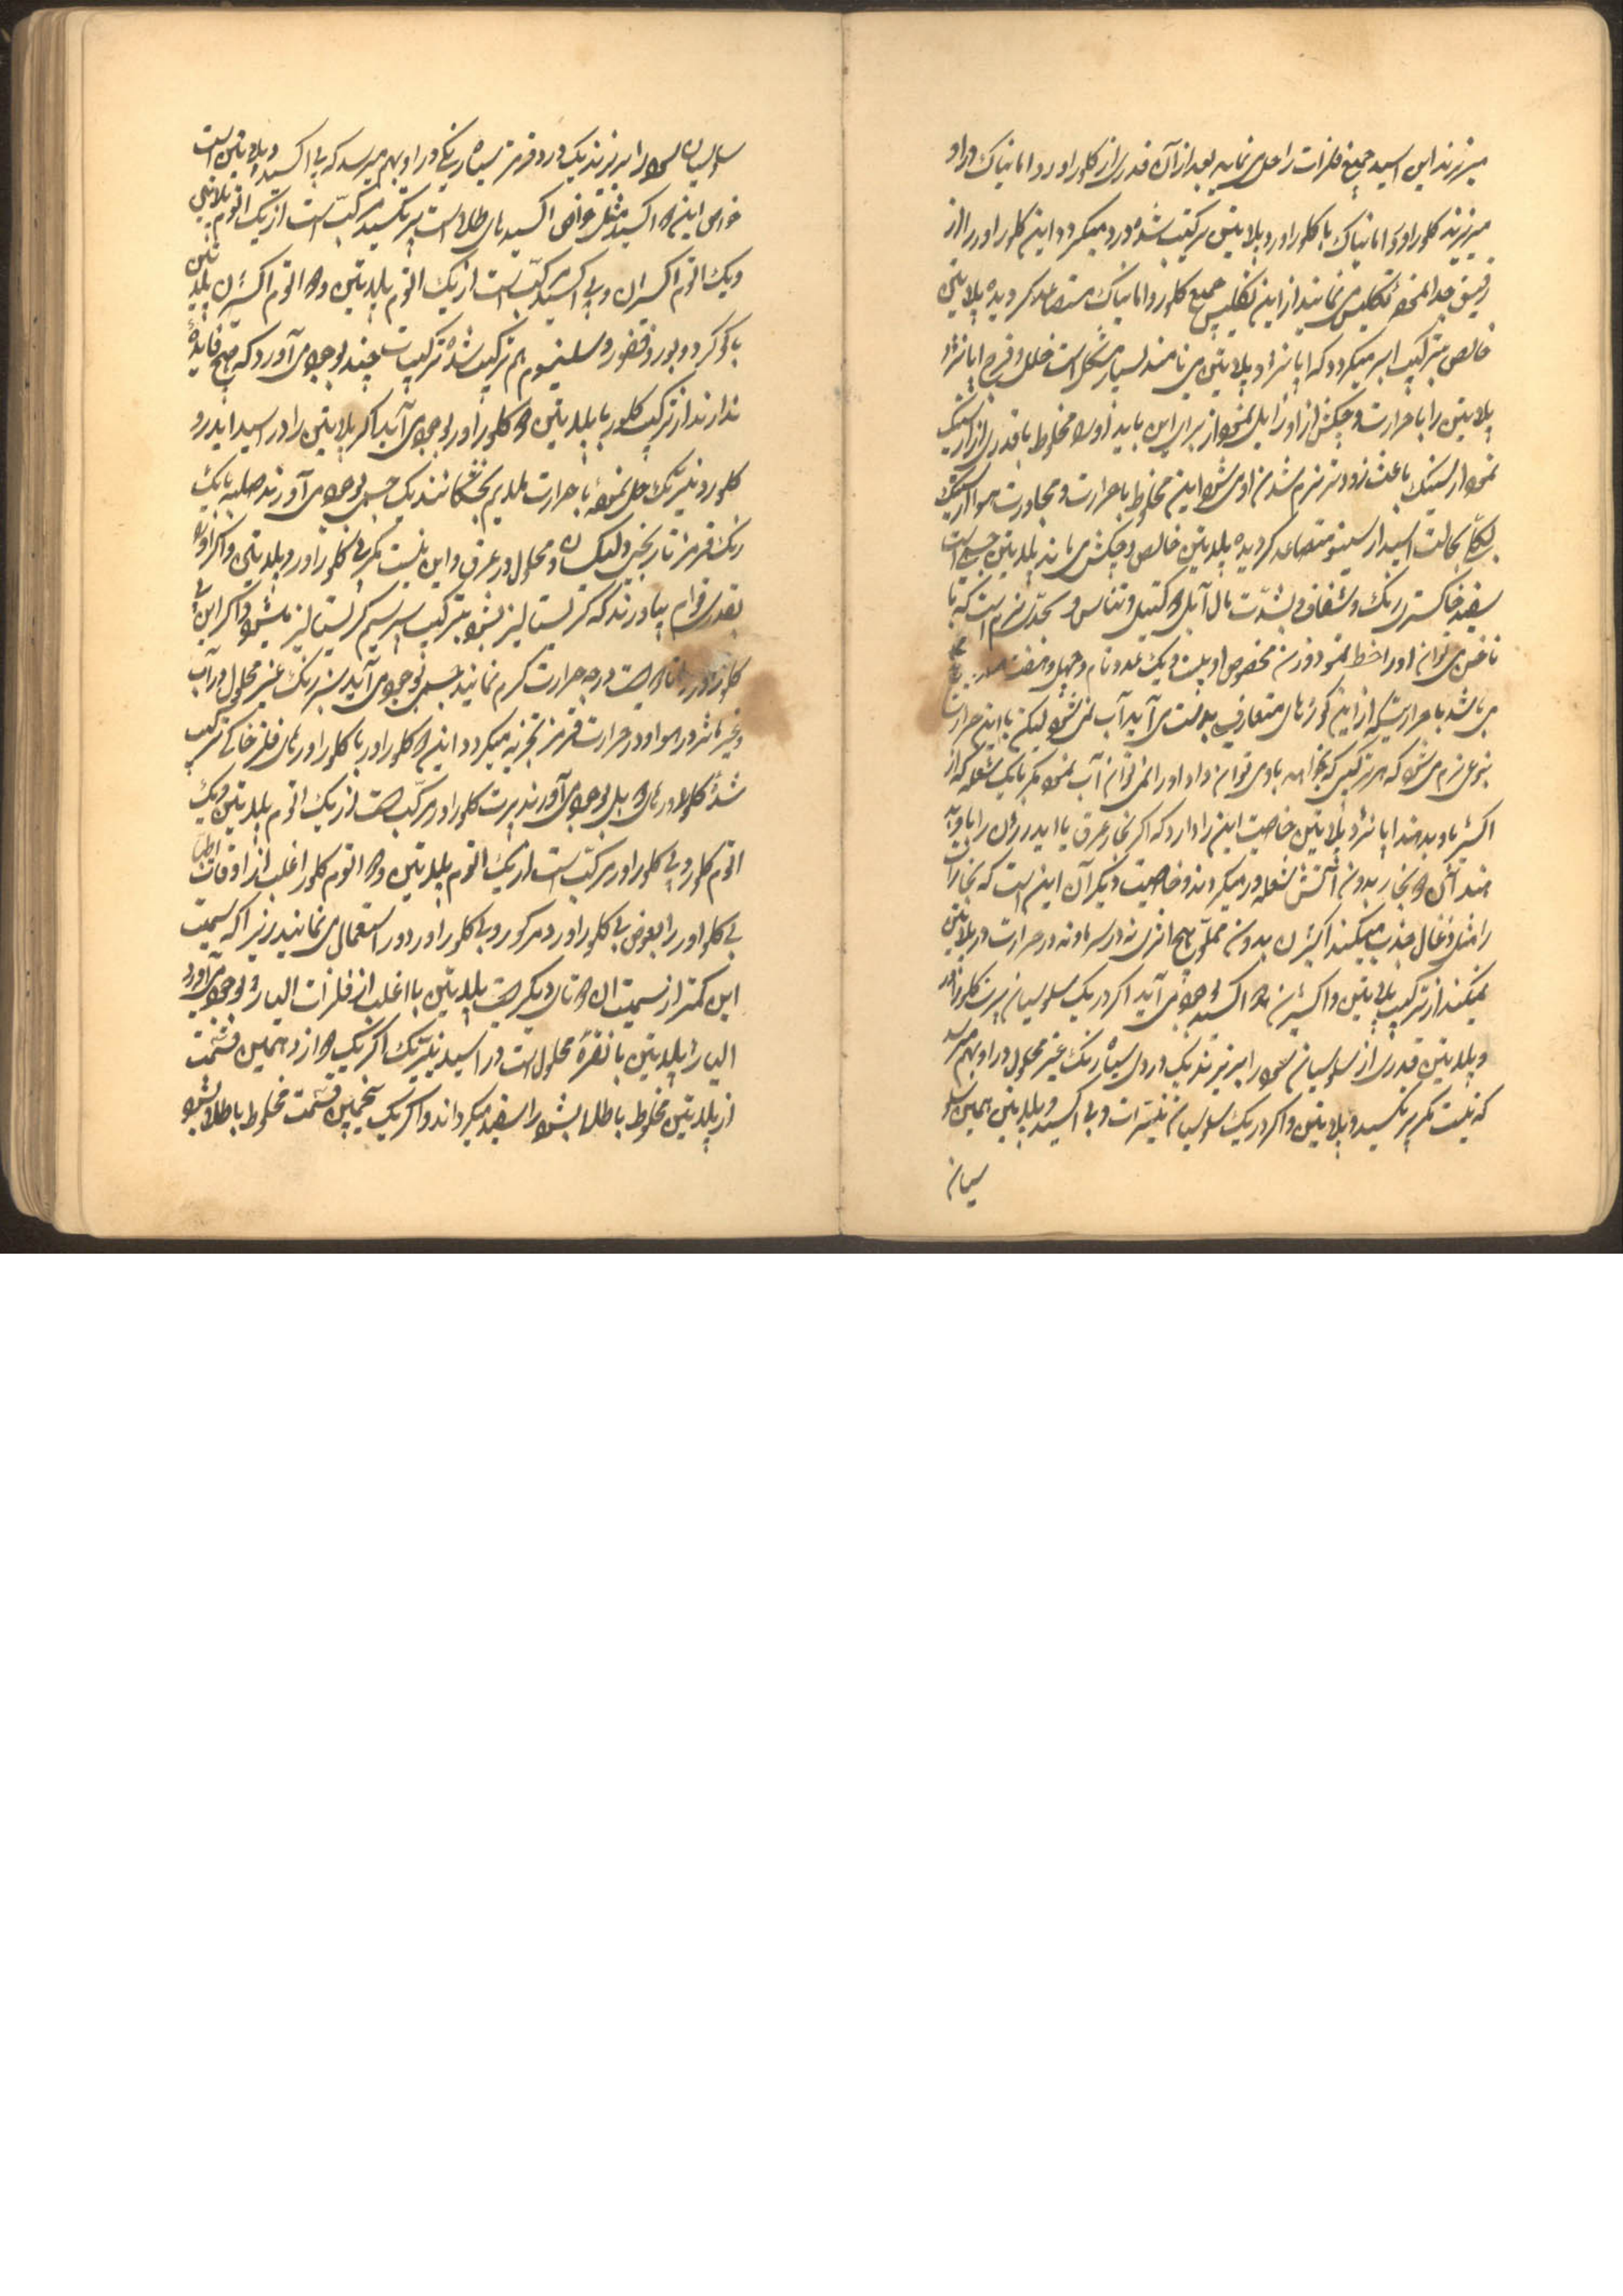 میریزند این اسید جمیع فلزات را حل می نماید بعد از آن قدری از کلوراورد امانیاک در او
میریزند کلوراورد امانیاک با کلوراورد پلاتین ترکیب شده درد میگردد این کلوراورد را از
رقیق جدا نموده تکلیس می نمایند از این تکلیس جمیع کلور و امانیاک متصاعد گردیده پلاتین
خالص بترکیب ابر میگردد که اپانژ د پلاتین می نامند بسیار مشکل است خلل و فرج اپانژ د
پلاتین را با حرارت و چکش از او زایل نمود از برای این باید او را مخلوط با قدری از ارسنیک
نمود ارسنیک باعث زودتر نرم شدن او می شود این مخلوط با حرارت و مجاورت هوا ارسنیک
بحالت اسید ارسنیو متصاعد گردیده پلاتین خالص و چکش می ماند پلاتین جسمی است
سفید خاکستری رنگ و شفاف بشدت مال آبل دوکتیل و تناس و بحدی نرم است که با
ناخن می توان او را خط نمود وزن مخصوص او بیست و یک عدد تام و چهل و هفت
می باشد با حرارتیکه از این کوره های متعارفی بدست می آید آب نمی شود لیکن با این حرارت
بنوعی نرم می شود که هر ترکیبی که بخواهند باو می توان داد او را نمی توان آب نمود مگر با یک شعله که از
اکسیژن باو بدهند اپانژ د پلاتین خاصیت این را دارد که اگر بخار عرق یا ایدرژن را باو
بدهند آن بخار بدون آتش شعله ور میگردند و خاصیت دیگر آن این است که بخارات
را مثل ذغال جذب میکنند اکسیژن بدون مملو هیچ اثری نه در سرما و نه در حرارت در پلاتین
نمیکند از ترکیب پلاتین و اکسیژن دو اکسید بوجود می آید اگر در یک سلوسیان پرت کلوراورد
د پلاتین قدری از سلوسیان سود را بریزند یک درد سیاه رنگ غیر محلول در او بهم میرسد
که نیست مگر پرتکسید د پلاتین و اگر در یک سلوسیان نیترات د بی اکسید د پلاتین همین سلو
سیان
سلوسیان سود را بریزند یک درد قرمز سیاه رنگی در او بهم میرسد که بی اکسید د پلاتین است
خواص این دو اکسید مثل خواص اکسیدهای طلا است پرتکسید مرکب است از یک اتوم پلاتین
و یک اتوم اکسژن و بی اکسید مرکب است از یک اتوم پلاتین و دو اتوم اکسژن پلاتین
با گوگرد و بور و فسفور و سلنیوم هم ترکیب شده ترکیبات چند بوجود می آورد که هیچ فایده
ندارند از ترکیب کلور با پلاتین دو کلوراورد بوجود می آید اگر پلاتین را در اسید ایدرو
کلورو نیتریک حل نموده با حرارت ملایم بخشکانند یک جسمی بوجود می آورند صلب با یک
رنگ قرمز نارنجی و محلول در عرق و این نیست مگر بی کلوراورد د پلاتین و اگر او را
بقدری قوام بیاورند که کریستالیز بشود بترکیب پریسم کریستالیز میشود و اگر این بی
کلوراورد را تا دویست درجه حرارت گرم نمایند جسمی بوجود می آید سبز رنگ غیر محلول در آب
و غیر متأثر در هوا و در حرارت قرمز تجزیه میگردد این دو کلوراورد با کلوراوردهای فلز خاکی ترکیب
شده کلوراوردهای دوبل بوجود می آورند پرت کلوراورد مرکب است از یک اتوم پلاتین و یک
اتوم کلور و بی کلوراورد مرکب است از یک اتوم پلاتین و دو اتوم کلور اغلب از اوقات اطبا
بی کلوراورد را بعوض بی کلوراورد مرکور و بی کلوراورد در استعمال می نمایند زیرا که سمیت
این کمتر از سمیت آن دوتای دیگر است پلاتین با اغلب از فلزات الیاژ بوجود می آورد
الیاژ پلاتین با نقره محلول است در اسید نیتریک اگر یک دوازدهمین قسمت
از پلاتین مخلوط با طلا بشود را سفید میگرداند و اگر یک پنجمین قسمت مخلوط با طلا بشود